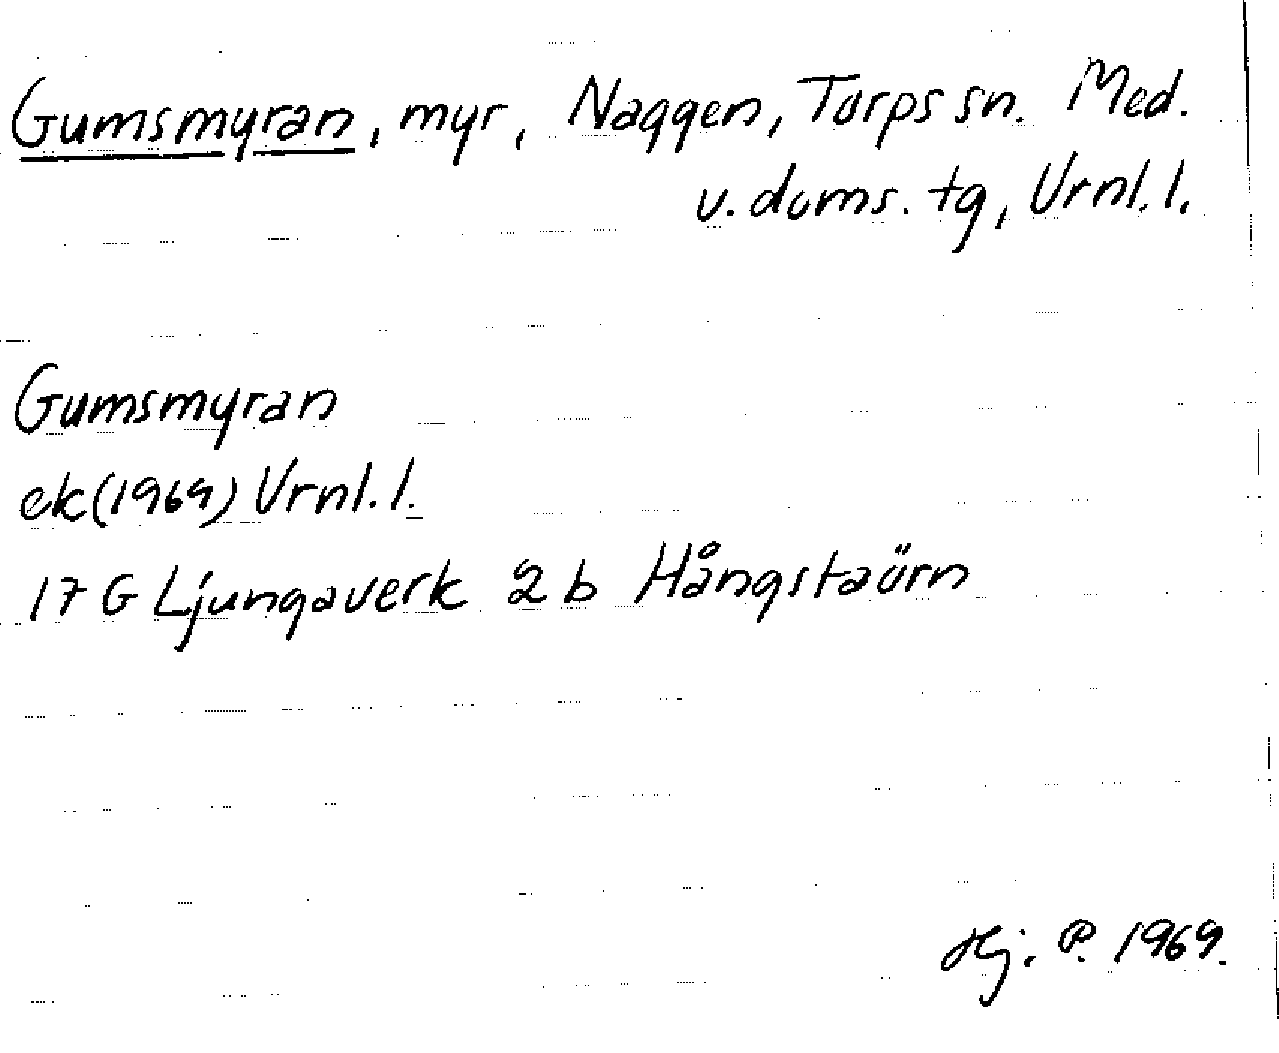 Gumsmyran, myr, Naggen, Torps sn. Med.
v. doms. tg, Urnl. l.
Gumsmyran
ek (1969) Urnl. l.
17 G Ljungaverk 2 b Hångstaörn
Hj. P. 1969.